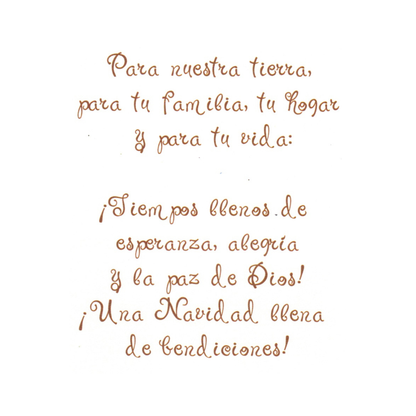 Para nuestra tierra,
para tu familia, tu hogar
y para tu vida:
¡Tiempos llenos de
esperanza, alegría
y la paz de Dios!
¡Una Navidad llena
de bendiciones!